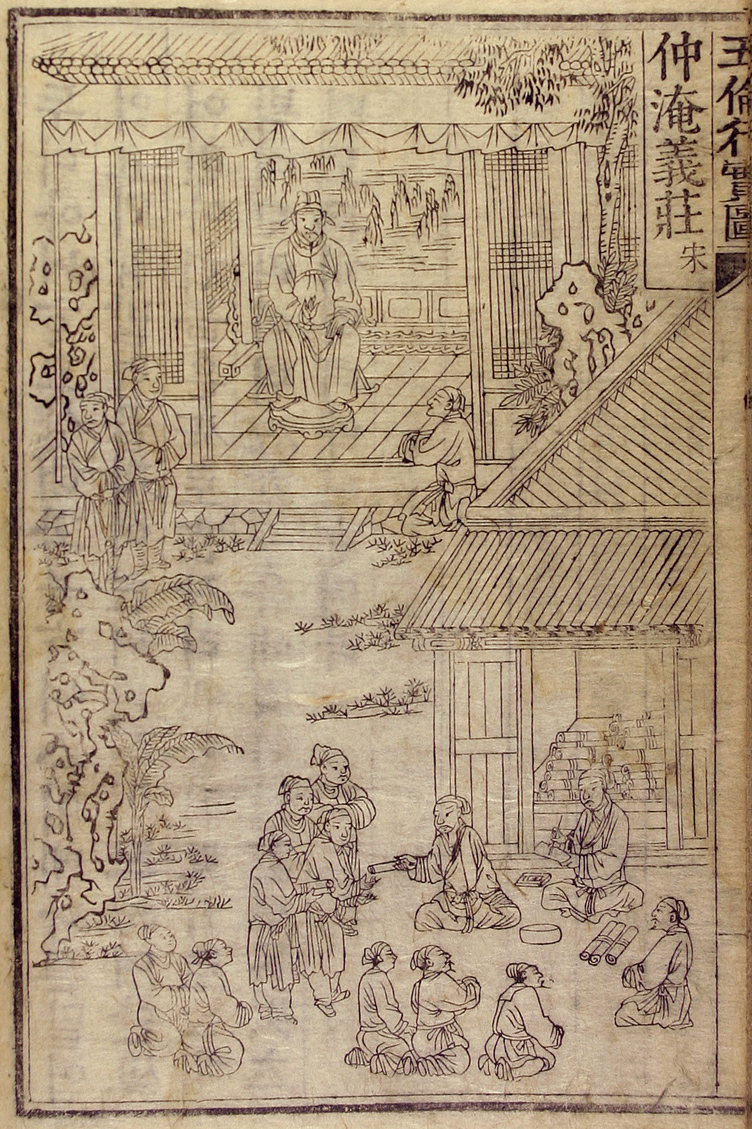 五倫行實圖
仲淹義莊 宋